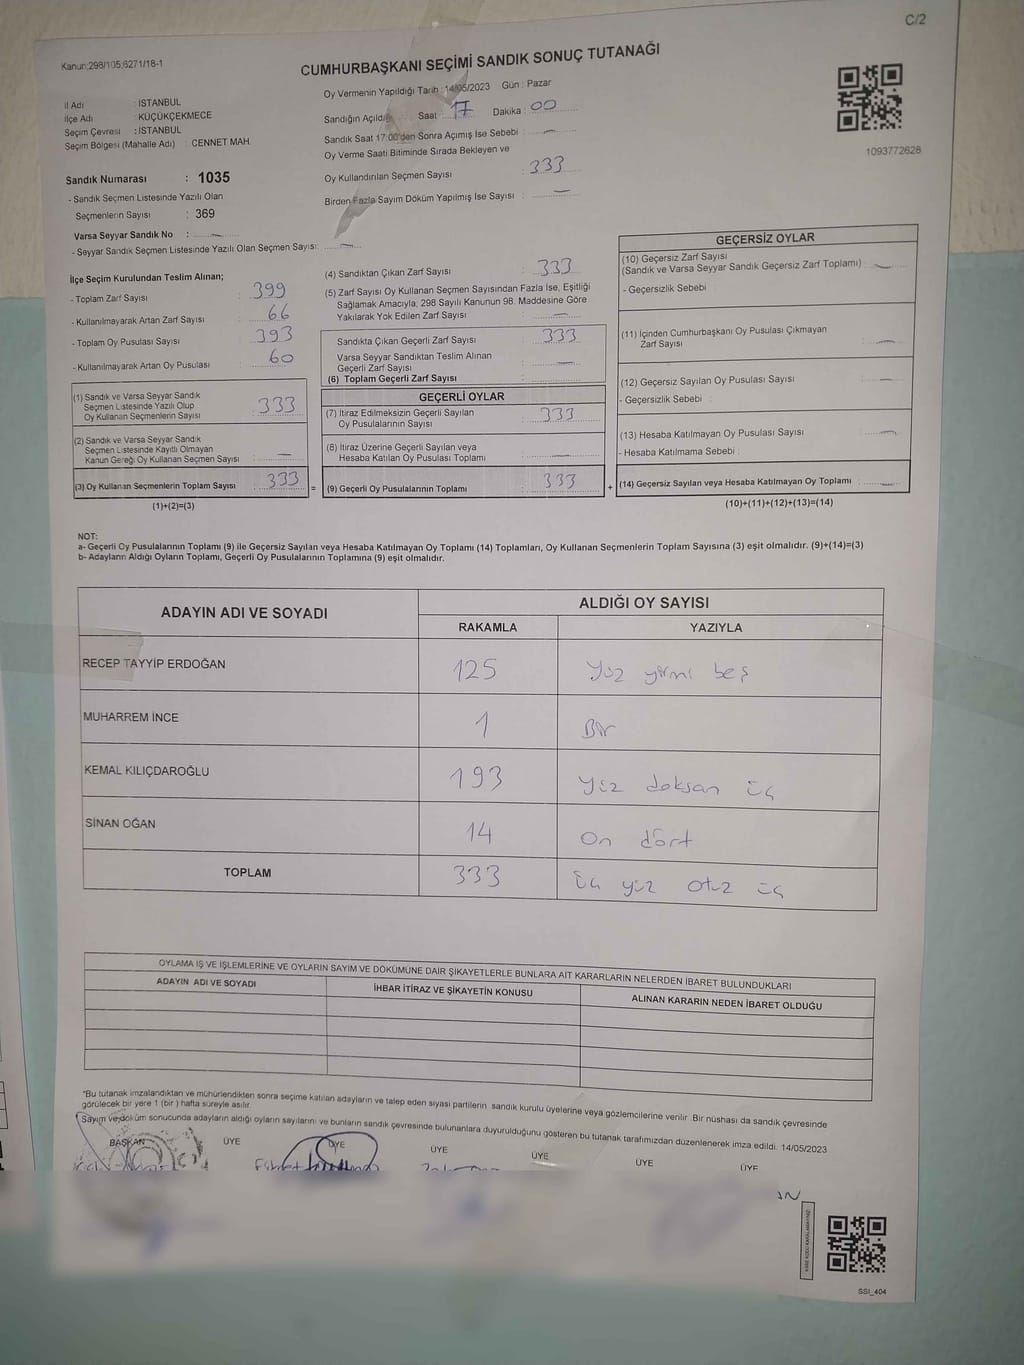 C/2
Kanun:298/105,6271/18-1
CUMHURBAŞKANI SEÇİMİ SANDIK SONUÇ TUTANAĞI
İl Adı : İSTANBUL
İlçe Adı : KÜÇÜKÇEKMECE
Seçim Çevresi : İSTANBUL
Seçim Bölgesi (Mahalle Adı) : CENNET MAH.
Sandık Numarası : 1035
- Sandık Seçmen Listesinde Yazılı Olan
Seçmenlerin Sayısı : 369
Varsa Seyyar Sandık No : —
- Seyyar Sandık Seçmen Listesinde Yazılı Olan Seçmen Sayısı: —
Oy Vermenin Yapıldığı Tarih : 14/05/2023 Gün : Pazar
Sandığın Açıldığı Saat : 17 Dakika : 00
Sandık Saat 17:00'den Sonra Açımış İse Sebebi : —
Oy Verme Saati Bitiminde Sırada Bekleyen ve
Oy Kullandırılan Seçmen Sayısı : 333
Birden Fazla Sayım Döküm Yapılmış İse Sayısı : —
1093772628
İlçe Seçim Kurulundan Teslim Alınan;
- Toplam Zarf Sayısı : 399
- Kullanılmayarak Artan Zarf Sayısı : 66
- Toplam Oy Pusulası Sayısı : 393
- Kullanılmayarak Artan Oy Pusulası : 60
(1) Sandık ve Varsa Seyyar Sandık
Seçmen Listesinde Yazılı Olup
Oy Kullanan Seçmenlerin Sayısı : 333
(2) Sandık ve Varsa Seyyar Sandık
Seçmen Listesinde Kayıtlı Olmayan
Kanun Gereği Oy Kullanan Seçmen Sayısı : —
(3) Oy Kullanan Seçmenlerin Toplam Sayısı : 333
(1)+(2)=(3)
(4) Sandıktan Çıkan Zarf Sayısı : 333
(5) Zarf Sayısı Oy Kullanan Seçmen Sayısından Fazla İse, Eşitliği
Sağlamak Amacıyla; 298 Sayılı Kanunun 98. Maddesine Göre
Yakılarak Yok Edilen Zarf Sayısı : —
Sandıkta Çıkan Geçerli Zarf Sayısı : 333
Varsa Seyyar Sandıktan Teslim Alınan
Geçerli Zarf Sayısı : —
(6) Toplam Geçerli Zarf Sayısı :
GEÇERLİ OYLAR
(7) İtiraz Edilmeksizin Geçerli Sayılan
Oy Pusulalarının Sayısı : 333
(8) İtiraz Üzerine Geçerli Sayılan veya
Hesaba Katılan Oy Pusulası Toplamı : —
= (9) Geçerli Oy Pusulalarının Toplamı : 333 +
GEÇERSİZ OYLAR
(10) Geçersiz Zarf Sayısı
(Sandık ve Varsa Seyyar Sandık Geçersiz Zarf Toplamı) : —
- Geçersizlik Sebebi :
(11) İçinden Cumhurbaşkanı Oy Pusulası Çıkmayan
Zarf Sayısı : —
(12) Geçersiz Sayılan Oy Pusulası Sayısı : —
- Geçersizlik Sebebi :
(13) Hesaba Katılmayan Oy Pusulası Sayısı : —
- Hesaba Katılmama Sebebi :
(14) Geçersiz Sayılan veya Hesaba Katılmayan Oy Toplamı : —
(10)+(11)+(12)+(13)=(14)
NOT:
a- Geçerli Oy Pusulalarının Toplamı (9) ile Geçersiz Sayılan veya Hesaba Katılmayan Oy Toplamı (14) Toplamları, Oy Kullanan Seçmenlerin Toplam Sayısına (3) eşit olmalıdır. (9)+(14)=(3)
b- Adayların Aldığı Oyların Toplamı, Geçerli Oy Pusulalarının Toplamına (9) eşit olmalıdır.
ADAYIN ADI VE SOYADI
ALDIĞI OY SAYISI
RAKAMLA YAZIYLA
RECEP TAYYİP ERDOĞAN 125 Yüz yirmi beş
MUHARREM İNCE 1 Bir
KEMAL KILIÇDAROĞLU 193 Yüz doksan üç
SİNAN OĞAN 14 On dört
TOPLAM 333 Üç yüz otuz üç
OYLAMA İŞ VE İŞLEMLERİNE VE OYLARIN SAYIM VE DÖKÜMÜNE DAİR ŞİKAYETLERLE BUNLARA AİT KARARLARIN NELERDEN İBARET BULUNDUKLARI
ADAYIN ADI VE SOYADI İHBAR İTİRAZ VE ŞİKAYETİN KONUSU ALINAN KARARIN NEDEN İBARET OLDUĞU
*Bu tutanak imzalandıktan ve mühürlendikten sonra seçime katılan adayların ve talep eden siyasi partilerin sandık kurulu üyelerine veya gözlemcilerine verilir. Bir nüshası da sandık çevresinde
görülecek bir yere 1 (bir) hafta süreyle asılır.
Sayım ve döküm sonucunda adayların aldığı oyların sayılarını ve bunların sandık çevresinde bulunanlara duyurulduğunu gösteren bu tutanak tarafımızdan düzenlenerek imza edildi. 14/05/2023
BAŞKAN ÜYE ÜYE ÜYE ÜYE ÜYE ÜYE
SSI_404